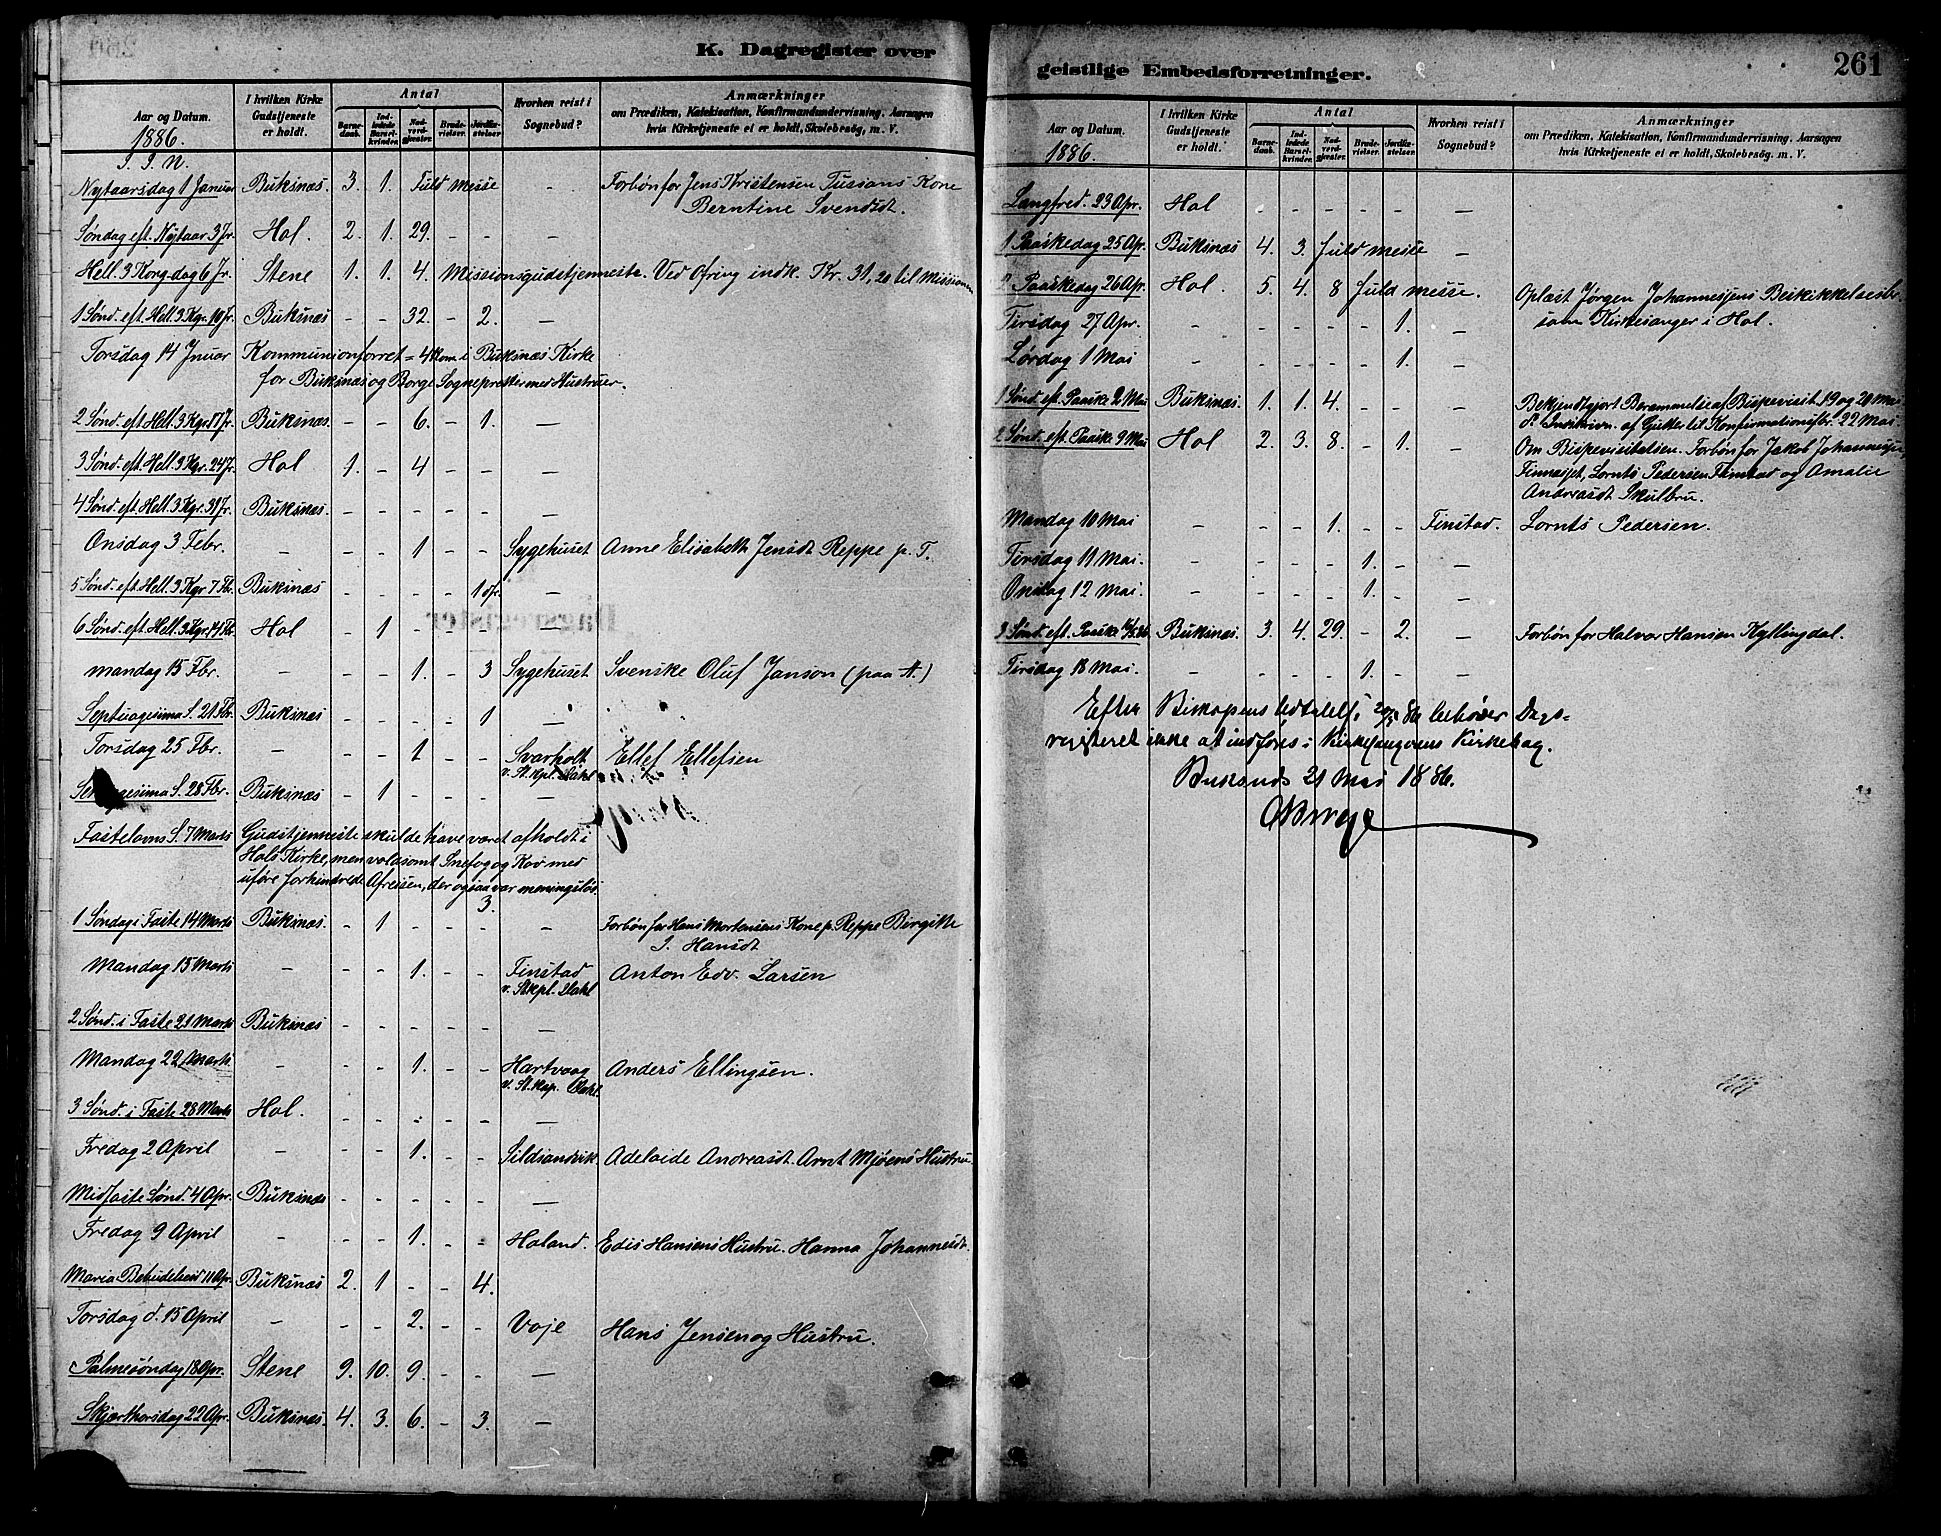 K. Dagregister over
Aar og Datum.
1886.
I hvilken Kirke
Gudstjeneste
er holdt.
Antal
Barne-
daab.
Ind-
ledede
Barsel-
kvinder.
Nad-
verd-
gjæster.
Brude-
vielser.
Jordfæ-
stelser.
Hvorhen reist i
Sognebud?
Anmærkninger
om Prædiken, Katekisation, Konfirmandundervisning, Aarsagen
hvis Kirketjeneste ei er holdt, Skolebesøg, m. V.
I. I. N.
Nytaarsdag 1 Januar Buksnæs. 3. 1. Fuld messe - Forbøn for Jens Kristensen Tusians Kone
Berntine Svendsdt.
Søndag eft. Nytaar 3 Jr. Hol. 2. 1. 29. - - -
Hell. 3 Kong-dag 6 Jr. Stene 1. 1. 4. Missionsgudstjenneste. Ved Ofring indk. Kr. 31,20 til Missionen
1 Sønd. eft. Hell. 3 Kgr. 10 Jr. Buksnæs - - 32. - 2. -
Torsdag 14 Jnuar Kommunionforret = 4 Kom. i Buksnæs Kirke
for Buksnæs og Borge Sogneprester med Hustruer.
2 Sønd. eft. Hell. 3 Kgr 17 Jr. Buksnæs. - - 6. - 1. -
3 Sønd. eft. Hell. 3 Kgr. 24 Jr. Hol 1. - 4 - - -
4 Sønd. eft. Hell. 3 Kgr. 31 Jr. Buksnæs. - - - - - -
Onsdag 3 Febr. - - - 1 - - Sygehuset Anne Elisabeth Jensdt Reppe p. T.
5 Sønd. eft. Hell. 3 Kgr 7 Fbr. Buksnæs - - - - 1 -
6 Sønd. eft. Hell. 3 Kgr. 14 Fbr. Hol - 1 - - - -
mandag 15 Fbr. - - - 1. - 3 Sygehuset Svenske Oluf Janson (paa A.)
Septuagesima S. 21 Fbr. Buksnæs - - - - 1 -
Torsdag 25 Fbr. - - - 1 - - Svarholt Ellef Ellefsen
v. St. kpl. Dahl
S. 28 Fbr. Buksnæs - 1 - - - -
Fastelavns S. 7 Marts Gudstjenneste skulde have været afholdt i
Hols Kirke, men voldsomt Snefog og Kov med
uføre forhindrede Afreisen, der ogsaa var meningsløs.
1 Søndag i Faste 14 Marts Buksnæs. - 1 - - 3. - Forbøn for Hans Mortensens Kone p. Reppe Birgitte
I. Hansdt
Mandag 15 Marts - - - 1. - - Finstad Anton Edv. Larsen
v. Stkpl. Dahl
2 Sønd. i Faste 21 Marts Buksnæs - - - - - -
Mandag 22 Marts - - - 1. - - Hartvaag Anders Ellingsen.
v. St. kap. Dahl.
3 Sønd. i Faste 28 Marts Hol. - - - - - -
Fredag 2 April - - - 1. - - Sildsandvik. Adelaide Andreasdt. Arnt Mjøens Hustru
Midfaste Sønd. 4 Apr. Buksnæs - - - - - -
Fredag 9 April - - - 1. - - Holand. Edis Hansens Hustru. Hanna Johannesdt.
Maria Bebudelses 11 Apr. Buksnæs 2. 1 - - 4. -
Torsdag d. 15 April - - - 2. - - Voje Hans Jensen og Hustru.
Palmesøndag 18 Apr. Stene 9. 10. 9. - - -
Skjærthorsdag 22 Apr. Buksnæs. 4. 3. 6. - 3. -
geistlige Embedsforretninger.
261
Aar og Datum.
1886.
I hvilken Kirke
Gudstjeneste
er holdt.
Antal
Barne-
daab.
Ind-
ledede
Barsel-
kvinder.
Nad-
verd-
gjæster.
Brude-
vielser.
Jordfæ-
stelser.
Hvorhen reist i
Sognebud?
Anmærkninger
om Prædiken, Katekisation, Konfirmandundervisning, Aarsagen
hvis Kirketjeneste ei er holdt, Skolebesøg, m. V.
Langfred. 23 Apr. Hol - - - - - -
1 Paaskedag 25 Ap. Buksnæs 4. 3. fuld messe -
2 Paaskedag 26 Apr. Hol. 5. 4. 8 fuld messe. Oplæst Jørgen Johannessens Beskikkelsesbr.
som Kirkesanger i Hol.
Tirsdag 27 Apr. - - - - - 1. -
Lørdag 1 Mai - - - - - 1. -
1 Sønd. eft. Paaske 2 Mai Buksnæs. 1. 1. 4. - - - Bekjendtgjort Berammelse af Bispevisit. 19 og 20 Mai
P. Indskrivn. af Gutter til Konfirmationsfbr. 22 Mai
2 Sønd. eft. Paaske 9 Mai Hol 2. 3. 8. - 1. - Om Bispevisitatsen. Forbøn for Jakob Johannessen
Finnesset, Lornts Pedersen Finstad og Amalie
Andreasdt Skulbru.
Mandag 10 Mai - - - 1. - - Finstad. Lornts Pedersen.
Tirsdag 11 Mai. - - - - 1. - -
Onsdag 12 Mai. - - - - 1. - -
3 Sønd. eft. Paaske 16/5.86. Buksnæs. 3. 4. 29. - 2. - Forbøn for Halvor Hansen Kyllingdal.
Tirsdag 18 Mai. - - - - 1. - -
Efter Biskopens Udtalelse 20/5 86 behøver Dags-
registeret ikke at indføres i Kirkesangerens Kirkebog.
Buksnæs 21 Mai 1886.